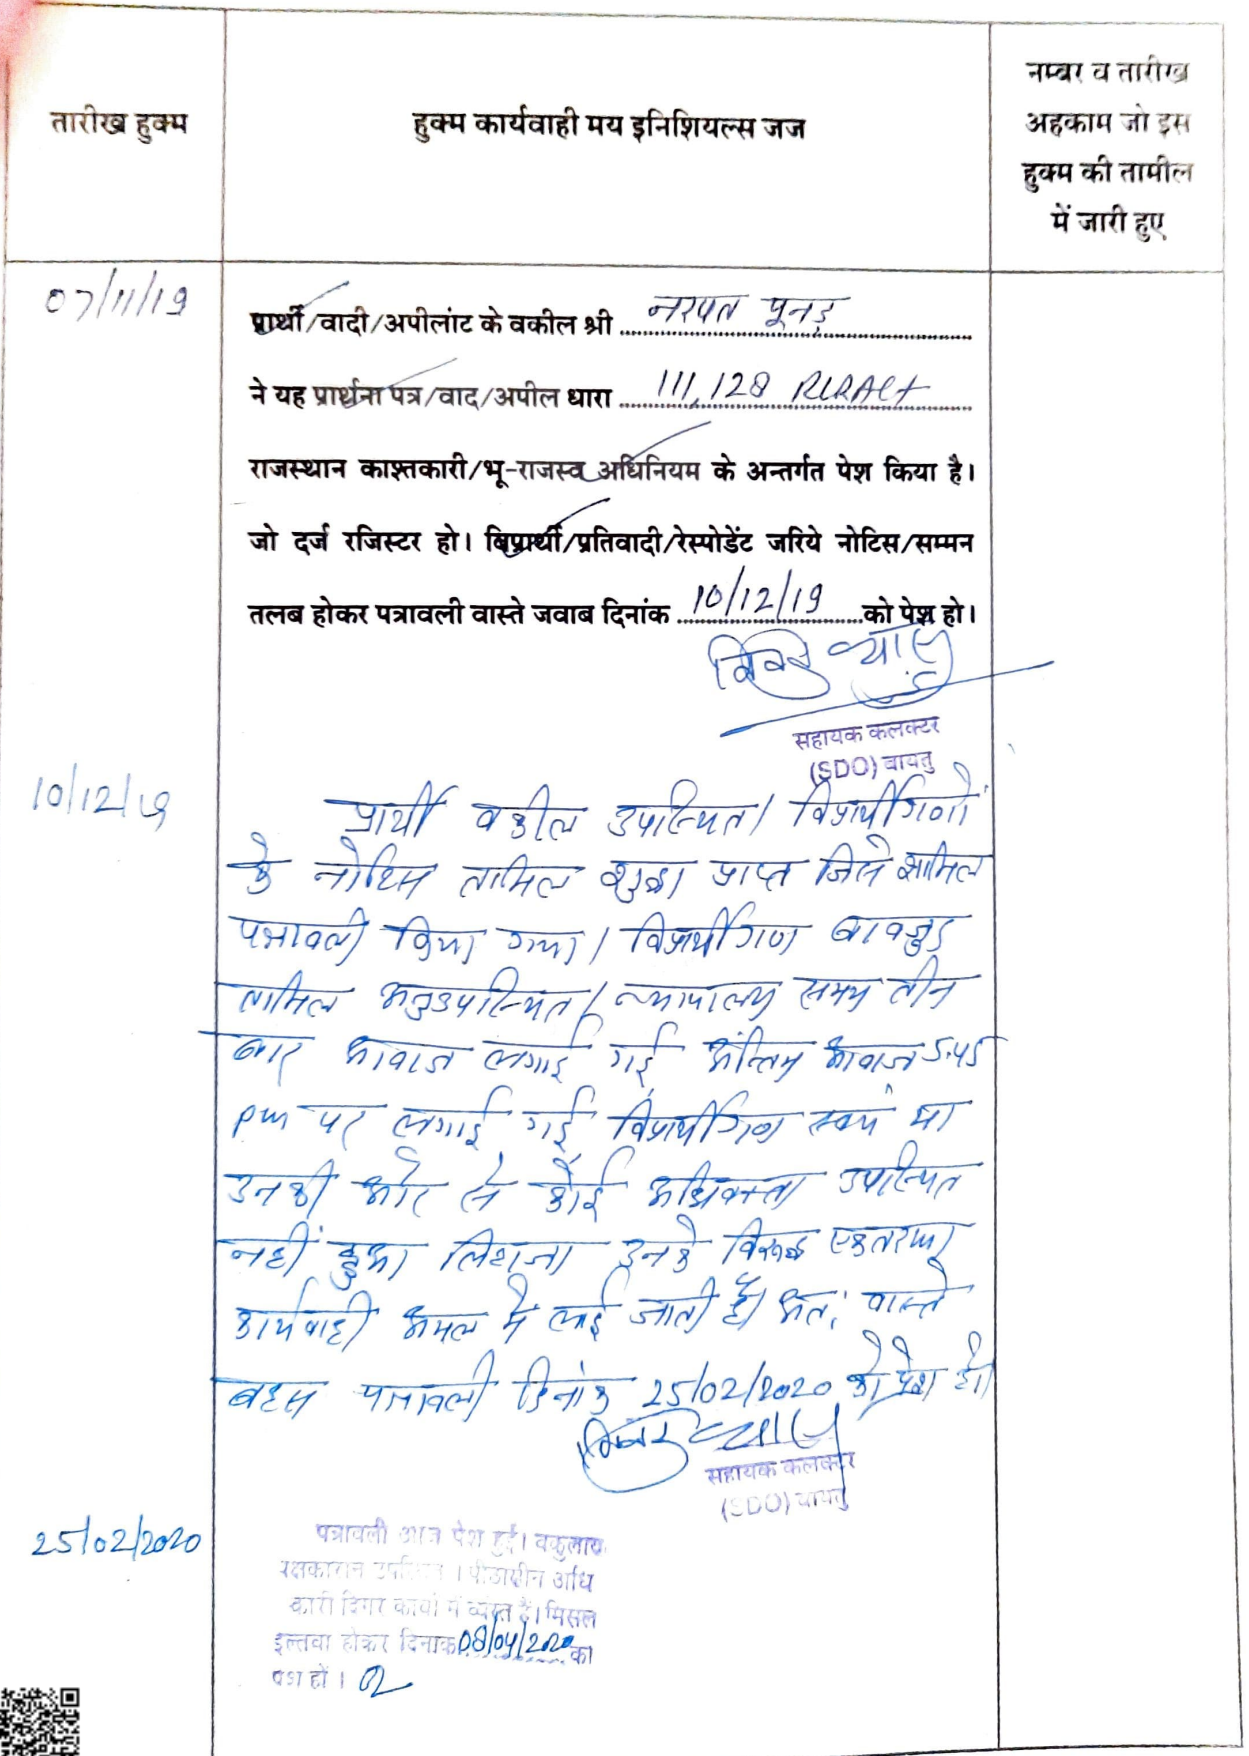 तारीख हुक्म
हुक्म कार्यवाही मय इनिशियल्स जज
नम्बर व तारीख
अहकाम जो इस
हुक्म की तामील
में जारी हुए
07/11/19
प्रार्थी/वादी/अपीलांट के वकील श्री नरपत पूनड़
ने यह प्रार्थना पत्र/वाद/अपील धारा 111,128 RLRAct
राजस्थान काश्तकारी/भू-राजस्व अधिनियम के अन्तर्गत पेश किया है।
जो दर्ज रजिस्टर हो। विप्रार्थी/प्रतिवादी/रेस्पोडेंट जरिये नोटिस/सम्मन
तलब होकर पत्रावली वास्ते जवाब दिनांक 10/12/19 को पेश हो।
सहायक कलक्टर
(SDO) बायतु
10/12/19
प्रार्थी वकील उपस्थित। विप्रार्थीगणों
के नोटिस तामिल शुदा प्राप्त जिसे शामिल
पत्रावली किया गया। विप्रार्थीगण बावजुद
तामिल अनुउपस्थित। न्यायालय समय तीन
बार आवाज लगाई गई, अंतिम आवाज 5.45
pm पर लगाई गई, विप्रार्थीगण स्वयं या
उनकी ओर से कोई अधिवक्ता उपस्थित
नहीं हुआ लिहाजा इनके विरूद्ध एकतरफा
कार्यवाही अमल में लाई जाती है। अतः वास्ते
बहस पत्रावली दिनांक 25/02/2020 को पेश हो।
सहायक कलक्टर
(SDO) बायतु
25/02/2020
पत्रावली आज पेश हुई। वकुलाय
उपस्थित । पीठासीन अधि
कारी दिगर कार्यो में व्यस्त हैं। मिसल
इल्तवा होकर दिनांक 08/04/2020 को
पेश हो ।